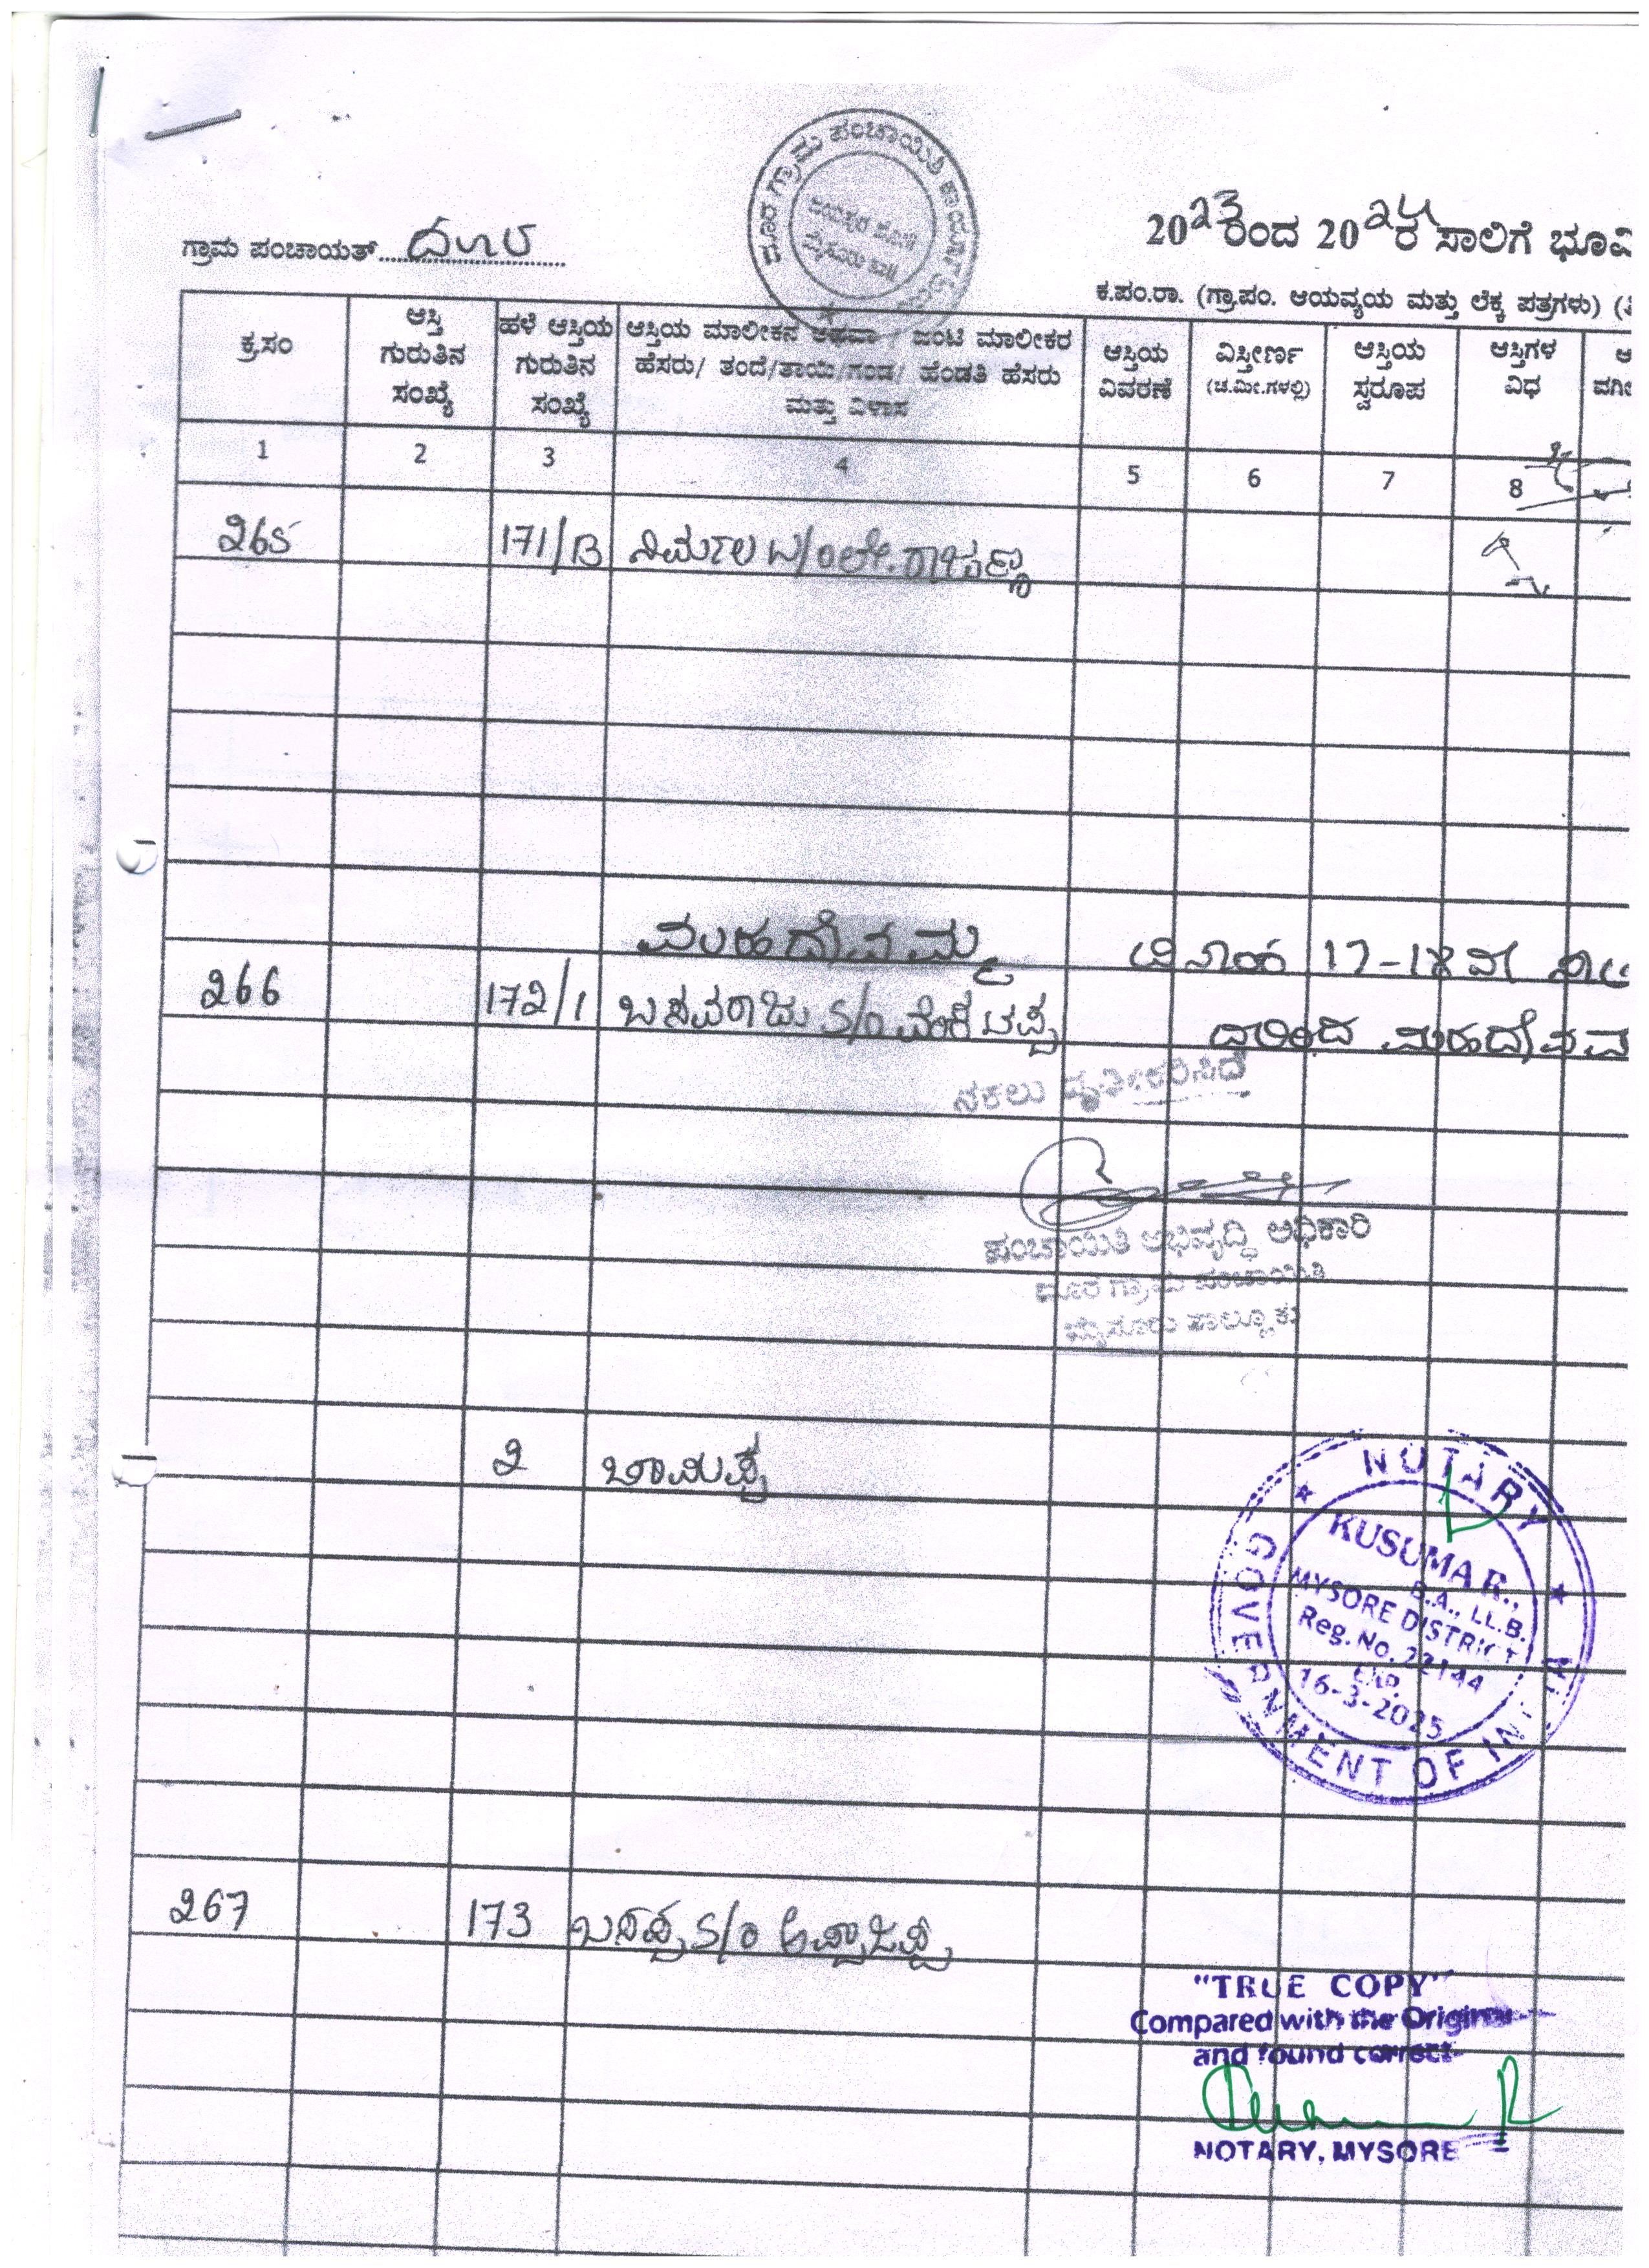 ದೂರ ಗ್ರಾಮ ಪಂಚಾಯಿತಿ ಕಾರ್ಯಾಲಯ
ಜಯಪುರ ಹೋಬಳಿ
ಮೈಸೂರು ತಾಃ
ಗ್ರಾಮ ಪಂಚಾಯತ್ ದೂರ
2023ರಿಂದ 2024ರ ಸಾಲಿಗೆ ಭೂಮಿ
ಕ.ಪಂ.ರಾ. (ಗ್ರಾ.ಪಂ. ಆಯವ್ಯಯ ಮತ್ತು ಲೆಕ್ಕ ಪತ್ರಗಳು)
ಕ್ರ.ಸಂ ಆಸ್ತಿ ಗುರುತಿನ ಸಂಖ್ಯೆ ಹಳೆ ಆಸ್ತಿಯ ಗುರುತಿನ ಸಂಖ್ಯೆ ಆಸ್ತಿಯ ಮಾಲೀಕನ ಅಥವಾ / ಜಂಟಿ ಮಾಲೀಕರ ಹೆಸರು/ ತಂದೆ/ತಾಯಿ/ಗಂಡ/ ಹೆಂಡತಿ ಹೆಸರು ಮತ್ತು ವಿಳಾಸ ಆಸ್ತಿಯ ವಿವರಣೆ ವಿಸ್ತೀರ್ಣ (ಚ.ಮೀ.ಗಳಲ್ಲಿ) ಆಸ್ತಿಯ ಸ್ವರೂಪ ಆಸ್ತಿಗಳ ವಿಧ
1 2 3 4 5 6 7 8
265 171/B ನಿರ್ಮಲ ಬ/೦ ಲೇ. ರಾಜಣ್ಣ
ಮಹದೇವಮ್ಮ 17-18
266 172/1 ಬಸವರಾಜು S/o ವೆಂಕಟಪ್ಪ
ನಕಲು ದೃಢೀಕರಿಸಿದೆ
ಪಂಚಾಯಿತಿ ಅಭಿವೃದ್ಧಿ ಅಧಿಕಾರಿ
ದೂರ ಗ್ರಾಮ ಪಂಚಾಯಿತಿ
ಮೈಸೂರು ತಾಲ್ಲೂಕು
2 ಚಾಮಪ್ಪ
NOTARY
KUSUMA R.,
B.A., LL.B.
MYSORE DISTRICT
Reg. No. 22144
EXP.
16-3-2025
GOVERNMENT OF INDIA
267 173 ಬಸಪ್ಪ S/o ಅಪ್ಪಾಜಪ್ಪ
"TRUE COPY"
Compared with the Original
and found correct
NOTARY, MYSORE